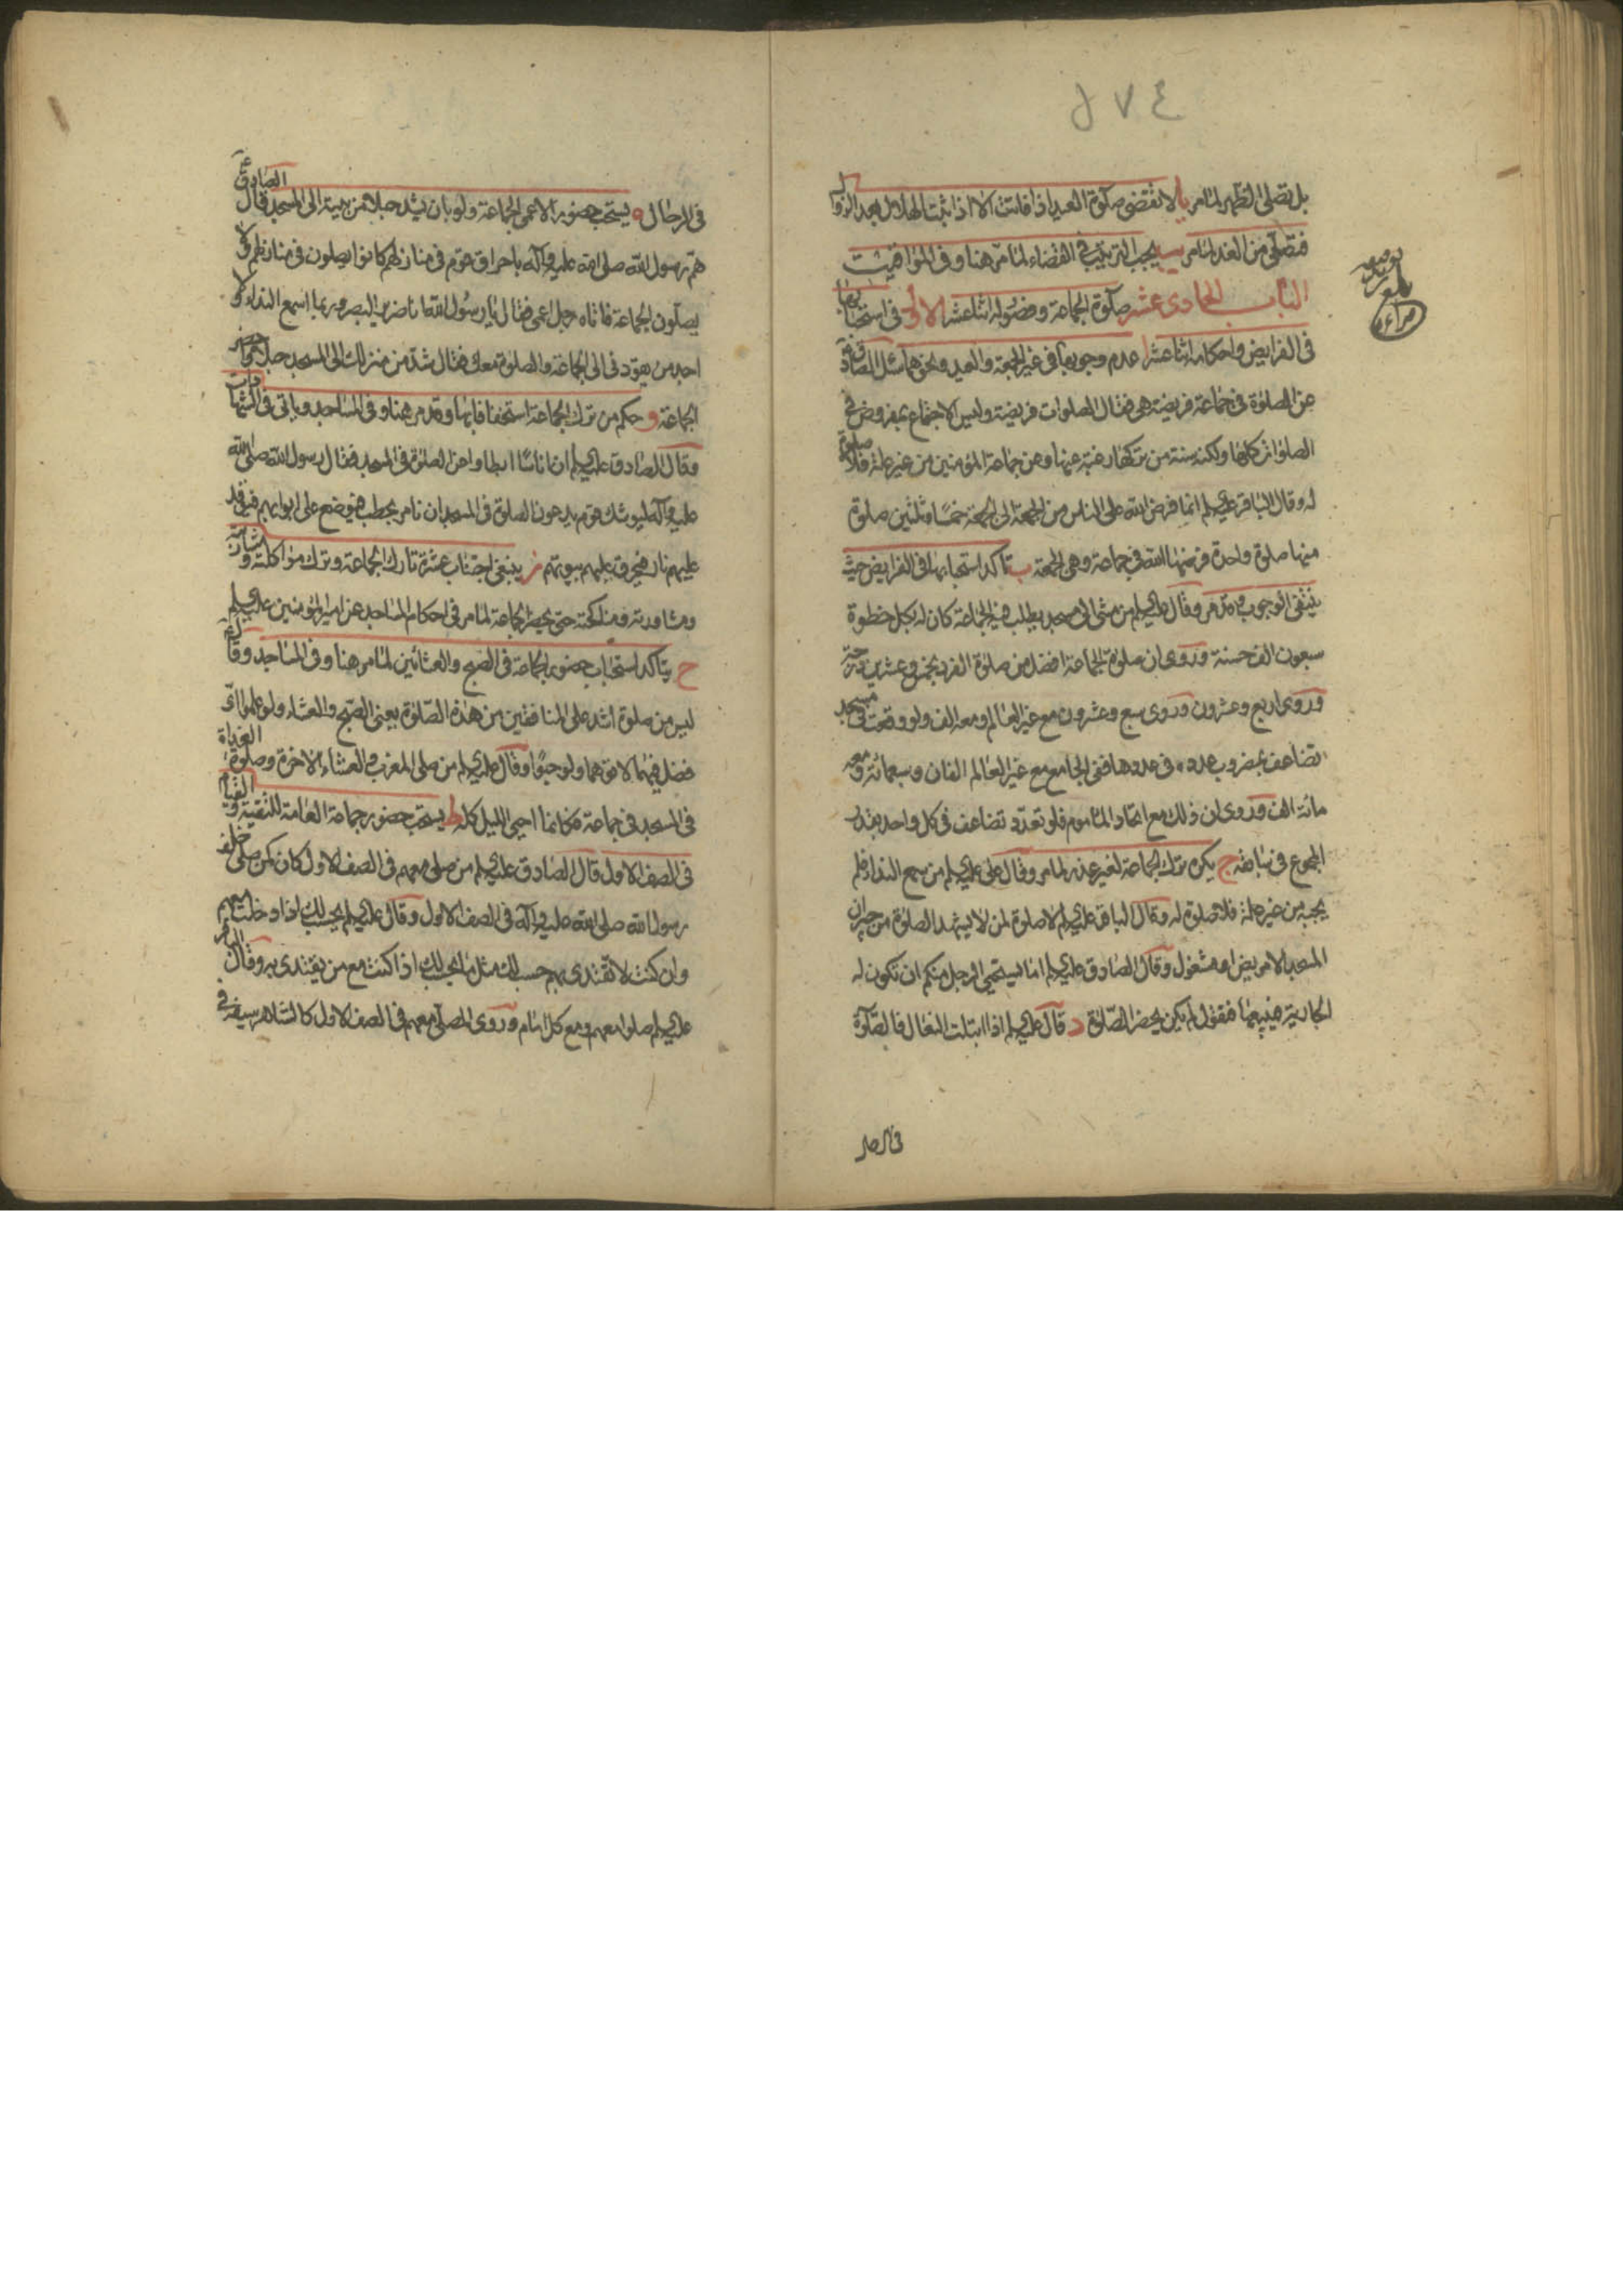 ٤٧٤
بل تصلى الظهر لما مر يا لا تقضى صلوة العيد اذا فاتت الا اذا ثبت الهلال بعد الزوال
فتصلى من الغد لما مر يب يجب الترتيب في القضاء لما مر هنا وفى المواقيت
الباب الحادى عشر صلوة الجماعة وفصوله اثنا عشر الاول فى استحبابها
فى الفرايض واحكامه اثنا عشر ا عدم وجوبها فى غير الجمعة والعيد ونحوهما سئل الصادق ع
عن الصلوة فى جماعة فريضة هى فقال الصلوات فريضة وليس الاجتماع بمفروض فى
الصلوات كلها ولكنه سنة من تركها رغبة عنها وعن جماعة المؤمنين من غير علة فلا صلوة
له وقال الباقر عليه السلم انما فرض الله على الناس من الجمعة الى الجمعة خمسا وثلثين صلوة
منها صلوة واحدة فرضها الله فى جماعة وهى الجمعة ب تاكد استحبابها فى الفرايض حيث
ينتفى الوجوب وقد مر وقال عليه السلم من مشى الى مسجد يطلب فيه الجماعة كان له بكل خطوة
سبعون الف حسنة وروى ان صلوة الجماعة افضل من صلوة الفرد بخمس وعشرين درجة
وروى اربع وعشرون وروى سبع وعشرون مع غير العالم ومعه الف ولو وقعت فى مسجد
تضاعف بمضروب عدده فى عددها ففى الجامع مع غير العالم الفان وسبعمائة ومعه
مائة الف وروى ان ذلك مع اتحاد الماموم فلو تعدد تضاعف فى كل واحد بقدر
المجموع فى سابقه ج يكره ترك الجماعة لغير عذر لما مر وقال على عليه السلم من سمع النداء فلم
يجبه من غير علة فلا صلوة له وقال الباقر عليه السلم لا صلوة لمن لا يشهد الصلوة من جيران
المسجد الا مريض او مشغول وقال الصادق عليه السلم اما يستحيى الرجل منكم ان تكون له
الجارية فيبيعها فتقول لم يكن يحضر الصلوة د قال عليه السلم اذا ابتلت النعال فالصلوة
فى الرحال
فى الرحال ه يستحب حضور الاعمى الجماعة ولو بان يشد حبلا من بيته الى المسجد قال الصادق ع
هم رسول الله صلى الله عليه وآله باحراق قوم فى منازلهم كانوا يصلون فى منازلهم ولا
يصلون الجماعة فاتاه رجل اعمى فقال يا رسول الله انا ضرير البصر وربما اسمع النداء ولا
احد من يقودنى الى الجماعة والصلوة معك فقال شد من منزلك الى المسجد حبلا واحضر
الجماعة و حكم من ترك الجماعة استخفافا بها وقد مر هنا وفى المساجد وياتى فى الشهادات
وقال الصادق عليه السلم ان اناسا ابطاوا عن الصلوة فى المسجد فقال رسول الله صلى الله
عليه وآله ليوشك قوم يدعون الصلوة فى المسجد ان نامر بحطب فيوضع على ابوابهم فيوقد
عليهم نار فتحرق عليهم بيوتهم ز ينبغى اجتناب عشرة تارك الجماعة وترك مواكلته ومشاربته
ومشاورته ومناكحته حتى يحضر الجماعة لما مر فى احكام المساجد عن امير المؤمنين عليه السلم
ح يتاكد استحباب حضور الجماعة فى الصبح والعشائين لما مر هنا وفى المساجد وقال ع
ليس من صلوة اشد على المنافقين من هذه الصلوة يعنى الصبح والعشاء ولو علموا اى
فضل فيهما لاتوهما ولو حبوا وقال عليه السلم من صلى المغرب والعشاء الاخرة وصلوة الغداة
فى المسجد فى جماعة فكانما احيى الليل كله ط يستحب حضور جماعة العامة للتقية والقيام
فى الصف الاول قال الصادق عليه السلم من صلى معهم فى الصف الاول كان كمن صلى خلف
رسول الله صلى الله عليه وآله فى الصف الاول وقال عليه السلم يحسب لك اذا دخلت معهم
وان كنت لا تقتدى بهم حسب لك مثل ما يحسب لك اذا كنت مع من يقتدى به وقال الباقر
عليه السلم صلوا معهم ومع كل امام وروى المصلى معهم فى الصف الاول كالشاهر سيفه فى